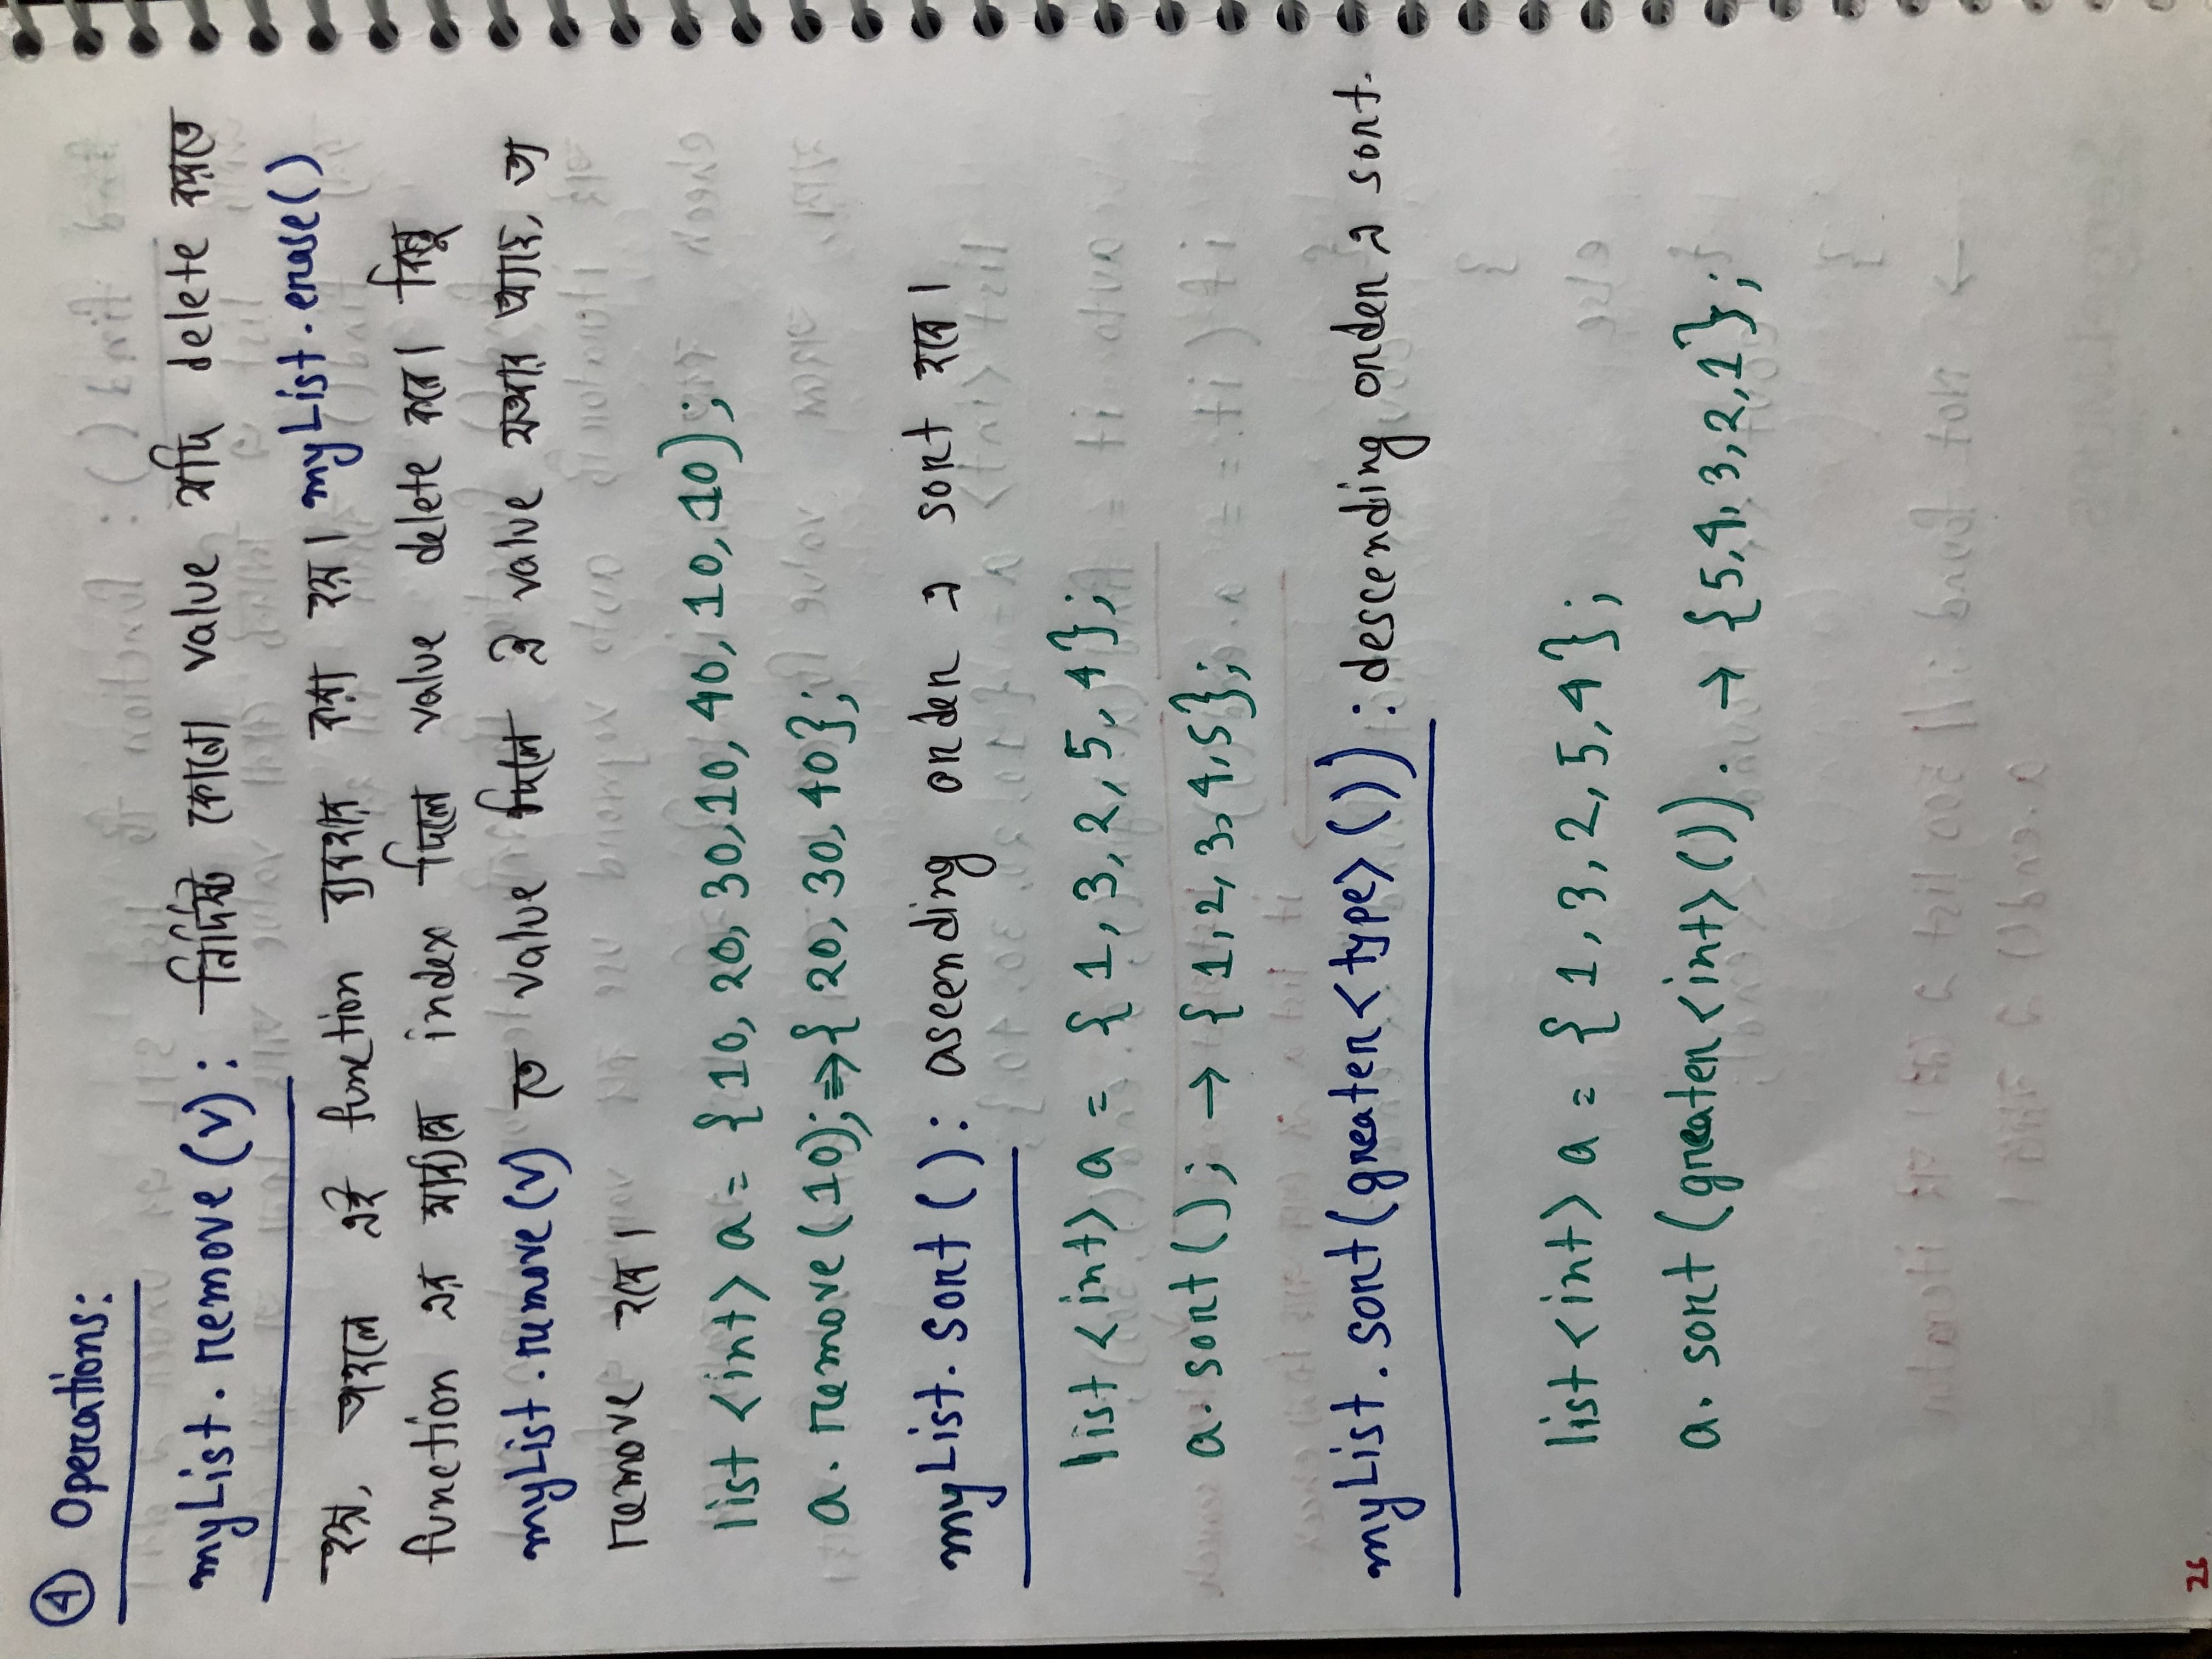 ④ Operations:
myList.remove(v): নির্দিষ্ট কোনো value যদি delete করতে
হয়, তাহলে এই function ব্যবহার করা হয়। myList.erase()
function এর মাধ্যমে index দিলে value delete করে। কিন্তু
myList.remove(v) তে value দিলে ঐ value যতবার আছে, তা
remove হবে।
list <int> a = {10, 20, 30, 10, 40, 10, 10);
a. remove (10); ⇒ { 20, 30, 40};
myList.sort(): ascending order এ sort হবে।
list <int> a = { 1, 3, 2, 5, 4};
a. sort(); → { 1, 2, 3, 4, 5};
myList.sort(greater<type>()): descending order এ sort.
list <int> a = { 1, 3, 2, 5, 4};
a. sort (greater<int>()). → {5, 4, 3, 2, 1};
26